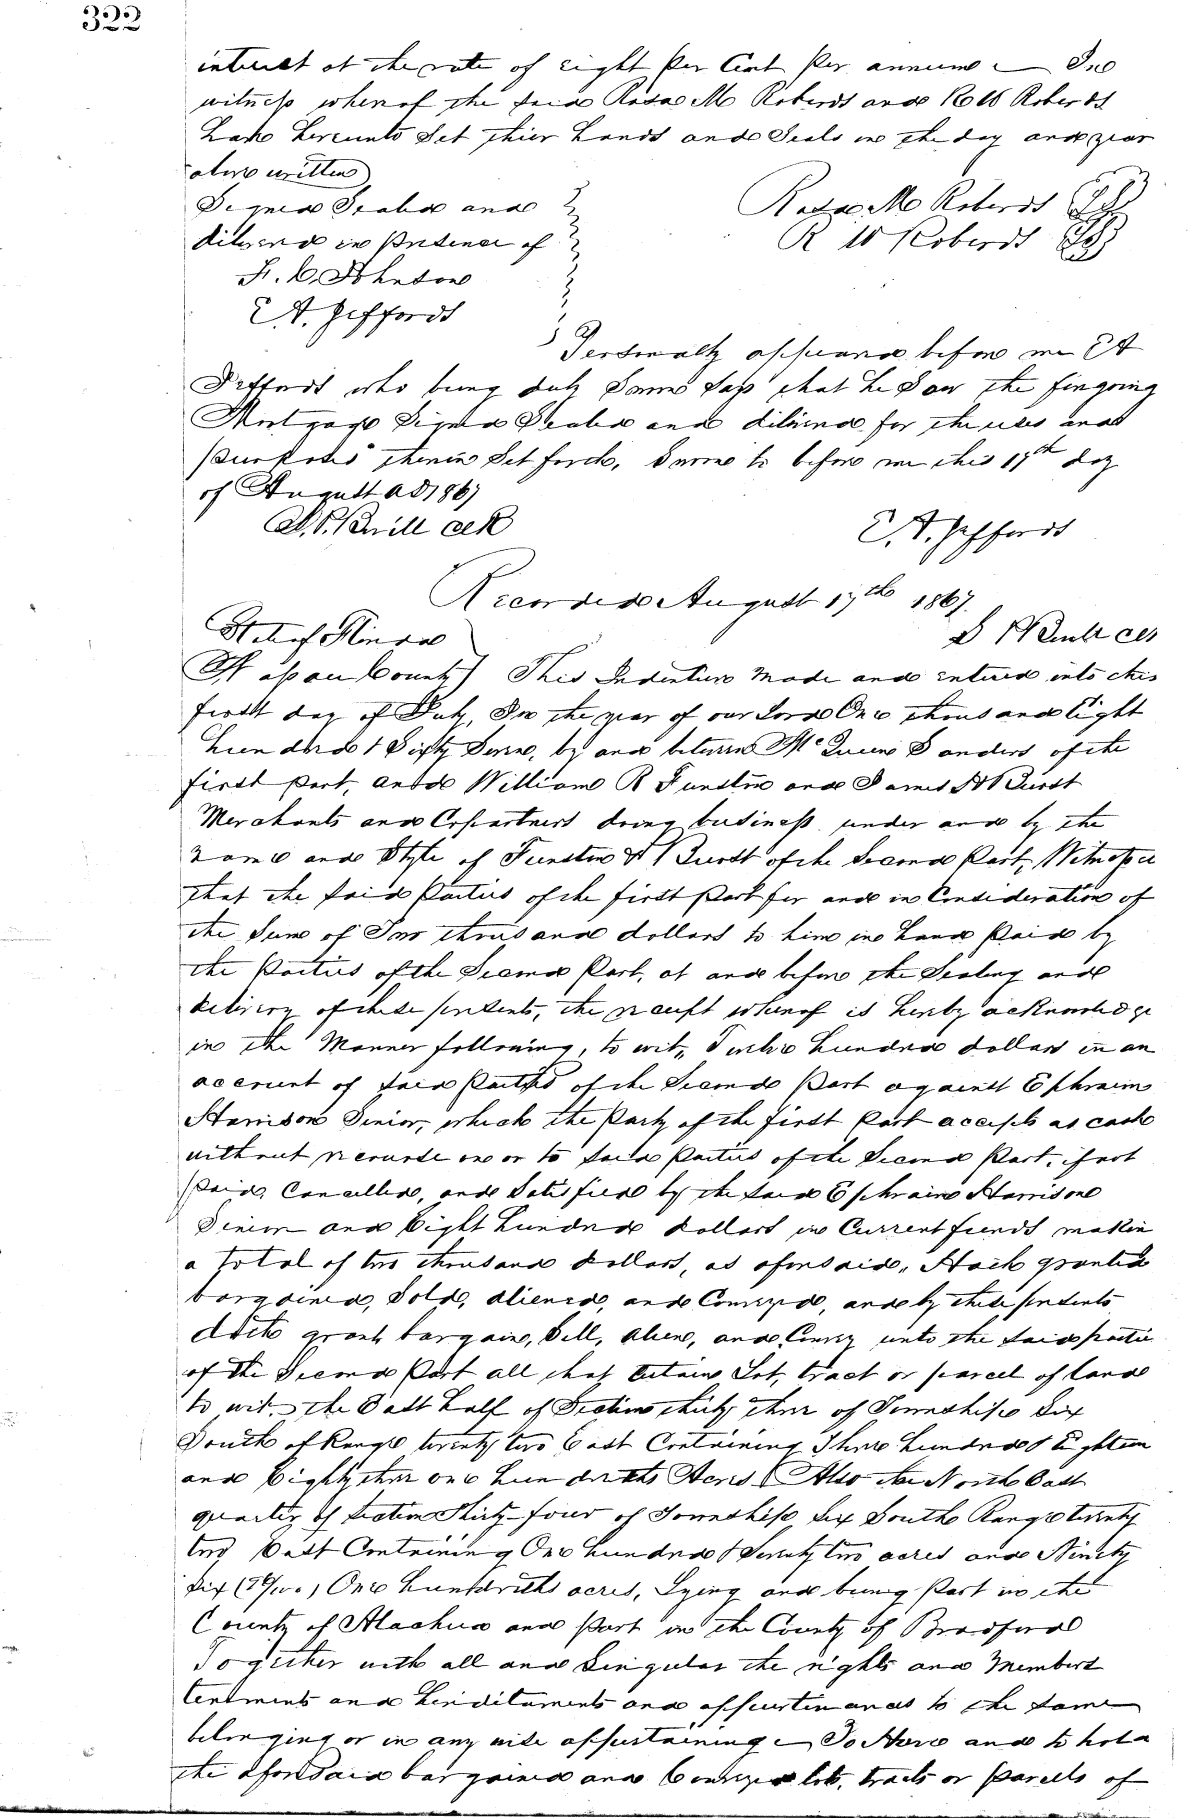 322
interest at the rate of eight per Cent per annum In
witness whereof the said Rosa M Roberds and R W Roberds
have hereunto Set thier hands and Seals on the day and year
above written
Signed Sealed and
delivered in presence of
Rosa M Roberds
R W Roberds
F. C. Johnson
E A. Jeffords
Personally appeared before me E A
Jeffords who being duly Sworn Says that he Saw the foregoing
Mortgage Signed Sealed and delivered for the uses and
purposes therein Set forth, Sworn to before me this 17th day
of August AD 1867
E. A. Jeffords
Recorded August 17th 1867.
State of Florida
County This Indenture made and entered into this
first day of July, In the year of our Lord One thousand Eight
hundred & Sixty Seven, by and between McQueen Sanders of the
first part, and William R Funston and James H Burst
Merchants and Copartners doing business under and by the
name and Style of Funston & Burst of the Second Part, Witnesse
that the said Parties of the first Part for and in Consideration of
the Sum of Two thousand dollars to him in hand Paid by
the Parties of the Second Part, at and before the Sealing and
delivery of these presents, the receipt whereof is hereby acknowledge
in the Manner following, to wit, Twelve hundred dollars in an
account of said Parties of the Second Part against Ephraim
Harrison Senior, which the Party of the first Part accepts as cash
without recourse on or to said Parties of the Second Part, if not
Paid, Cancelled, and Satisfied by the Said Ephraim Harrison
Senior and Eight hundred dollars in Current funds makin
a total of two thousand dollars, as aforesaid, Hath granted
bargained, Sold, aliened, and Conveyed, and by these presents
doth grant bargain, Sell, alien, and Convey unto the said partie
of the Second Part all that Certain Lot, tract or parcel of land
to wit. the East half of Section thirty three of Township Six
South of Range twenty two East Containing Three hundred & Eighteen
and Eighty three one hundreths Acres Also the North East
quarter of Section Thirty-four of Township Six South Range twenty
two East Containing One hundred & Seventy two acres and Ninety
Six (96/100) One hundreths acres, Lying and being Part in the
County of Alachua and part in the County of Bradford
Together with all and Singular the rights and Members
tenements and hereditaments and appurtenances to the same
belonging or in any wise appertaining To Have and to hold
the aforesaid bargained and Conveyed lots, tracts or parcells of